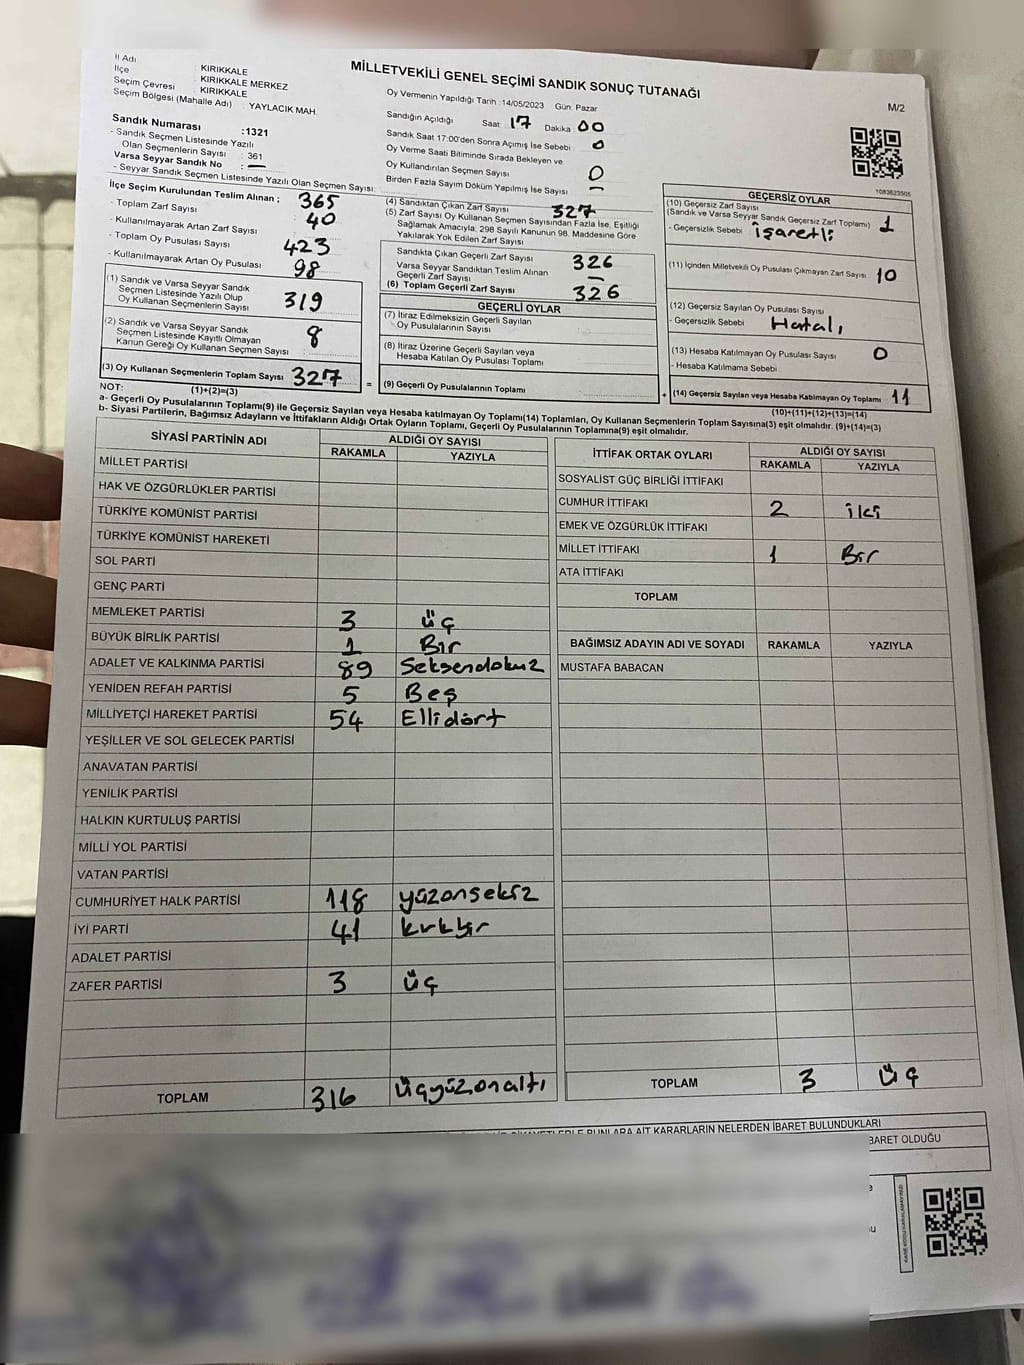 MİLLETVEKİLİ GENEL SEÇİMİ SANDIK SONUÇ TUTANAĞI
M/2
İl Adı : KIRIKKALE
İlçe : KIRIKKALE MERKEZ
Seçim Çevresi : KIRIKKALE
Seçim Bölgesi (Mahalle Adı) : YAYLACIK MAH.
Sandık Numarası :1321
- Sandık Seçmen Listesinde Yazılı
Olan Seçmenlerin Sayısı : 361
Varsa Seyyar Sandık No : —
- Seyyar Sandık Seçmen Listesinde Yazılı Olan Seçmen Sayısı:
Oy Vermenin Yapıldığı Tarih :14/05/2023 Gün: Pazar
Sandığın Açıldığı Saat 17 Dakika 00
Sandık Saat 17:00'den Sonra Açımış İse Sebebi : 0
Oy Verme Saati Bitiminde Sırada Bekleyen ve
Oy Kullandırılan Seçmen Sayısı : 0
Birden Fazla Sayım Döküm Yapılmış İse Sayısı : —
1083623505
İlçe Seçim Kurulundan Teslim Alınan ;
- Toplam Zarf Sayısı : 365
- Kullanılmayarak Artan Zarf Sayısı : 40
- Toplam Oy Pusulası Sayısı : 423
- Kullanılmayarak Artan Oy Pusulası : 98
(1) Sandık ve Varsa Seyyar Sandık
Seçmen Listesinde Yazılı Olup
Oy Kullanan Seçmenlerin Sayısı : 319
(2) Sandık ve Varsa Seyyar Sandık
Seçmen Listesinde Kayıtlı Olmayan
Kanun Gereği Oy Kullanan Seçmen Sayısı : 8
(3) Oy Kullanan Seçmenlerin Toplam Sayısı : 327
(4) Sandıktan Çıkan Zarf Sayısı : 327
(5) Zarf Sayısı Oy Kullanan Seçmen Sayısından Fazla İse, Eşitliği
Sağlamak Amacıyla, 298 Sayılı Kanunun 98. Maddesine Göre
Yakılarak Yok Edilen Zarf Sayısı
Sandıkta Çıkan Geçerli Zarf Sayısı : 326
Varsa Seyyar Sandıktan Teslim Alınan
Geçerli Zarf Sayısı : —
(6) Toplam Geçerli Zarf Sayısı : 326
GEÇERLİ OYLAR
(7) İtiraz Edilmeksizin Geçerli Sayılan
Oy Pusulalarının Sayısı :
(8) İtiraz Üzerine Geçerli Sayılan veya
Hesaba Katılan Oy Pusulası Toplamı :
= (9) Geçerli Oy Pusulalarının Toplamı :
GEÇERSİZ OYLAR
(10) Geçersiz Zarf Sayısı
(Sandık ve Varsa Seyyar Sandık Geçersiz Zarf Toplamı) : 1
- Geçersizlik Sebebi : işaretli
(11) İçinden Milletvekili Oy Pusulası Çıkmayan Zarf Sayısı : 10
(12) Geçersiz Sayılan Oy Pusulası Sayısı :
- Geçersizlik Sebebi : Hatalı
(13) Hesaba Katılmayan Oy Pusulası Sayısı : 0
- Hesaba Katılmama Sebebi :
+ (14) Geçersiz Sayılan veya Hesaba Katılmayan Oy Toplamı : 11
NOT: (1)+(2)=(3)
(10)+(11)+(12)+(13)=(14)
a- Geçerli Oy Pusulalarının Toplamı(9) ile Geçersiz Sayılan veya Hesaba katılmayan Oy Toplamı(14) Toplamları, Oy Kullanan Seçmenlerin Toplam Sayısına(3) eşit olmalıdır. (9)+(14)=(3)
b- Siyasi Partilerin, Bağımsız Adayların ve İttifakların Aldığı Ortak Oyların Toplamı, Geçerli Oy Pusulalarının Toplamına(9) eşit olmalıdır.
SİYASİ PARTİNİN ADI
ALDIĞI OY SAYISI
RAKAMLA YAZIYLA
MİLLET PARTİSİ
HAK VE ÖZGÜRLÜKLER PARTİSİ
TÜRKİYE KOMÜNİST PARTİSİ
TÜRKİYE KOMÜNİST HAREKETİ
SOL PARTİ
GENÇ PARTİ
MEMLEKET PARTİSİ 3 üç
BÜYÜK BİRLİK PARTİSİ 1 Bir
ADALET VE KALKINMA PARTİSİ 89 Seksendokuz
YENİDEN REFAH PARTİSİ 5 Beş
MİLLİYETÇİ HAREKET PARTİSİ 54 Ellidört
YEŞİLLER VE SOL GELECEK PARTİSİ
ANAVATAN PARTİSİ
YENİLİK PARTİSİ
HALKIN KURTULUŞ PARTİSİ
MİLLİ YOL PARTİSİ
VATAN PARTİSİ
CUMHURİYET HALK PARTİSİ 118 yüzonsekiz
İYİ PARTİ 41 kırkbir
ADALET PARTİSİ
ZAFER PARTİSİ 3 üç
TOPLAM 316 üçyüzonaltı
İTTİFAK ORTAK OYLARI
ALDIĞI OY SAYISI
RAKAMLA YAZIYLA
SOSYALİST GÜÇ BİRLİĞİ İTTİFAKI
CUMHUR İTTİFAKI 2 iki
EMEK VE ÖZGÜRLÜK İTTİFAKI
MİLLET İTTİFAKI 1 Bir
ATA İTTİFAKI
TOPLAM
BAĞIMSIZ ADAYIN ADI VE SOYADI RAKAMLA YAZIYLA
MUSTAFA BABACAN
TOPLAM 3 üç
BUNLARA AİT KARARLARIN NELERDEN İBARET BULUNDUKLARI
BARET OLDUĞU